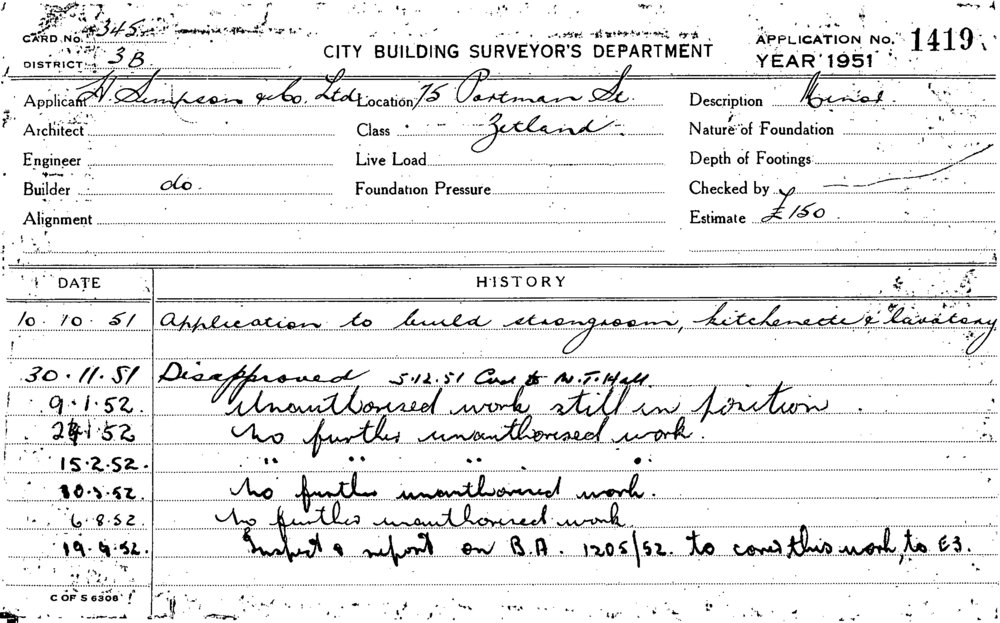 CARD No. 345
DISTRICT 3B
CITY BUILDING SURVEYOR'S DEPARTMENT
APPLICATION No. 1419
YEAR 1951
Applicant H Simpson & Co. Ltd Location 75 Portman St Description Minor
Architect Class Zetland Nature of Foundation
Engineer Live Load Depth of Footings
Builder do. Foundation Pressure Checked by
Alignment Estimate £150
DATE HISTORY
10.10.51 Application to build strongroom, kitchenette & lavatory
30.11.51 Disapproved 5.12.51 to N.T. Hall
9.1.52. Unauthorised work still in position
1.52 No further unauthorised work.
15.2.52. " " " "
.52. No further unauthorised work.
6.8.52 No further unauthorised work
19.9.52. Inspect & report on B.A. 1205/52. to cover this work, to E3.
C OF S 6306